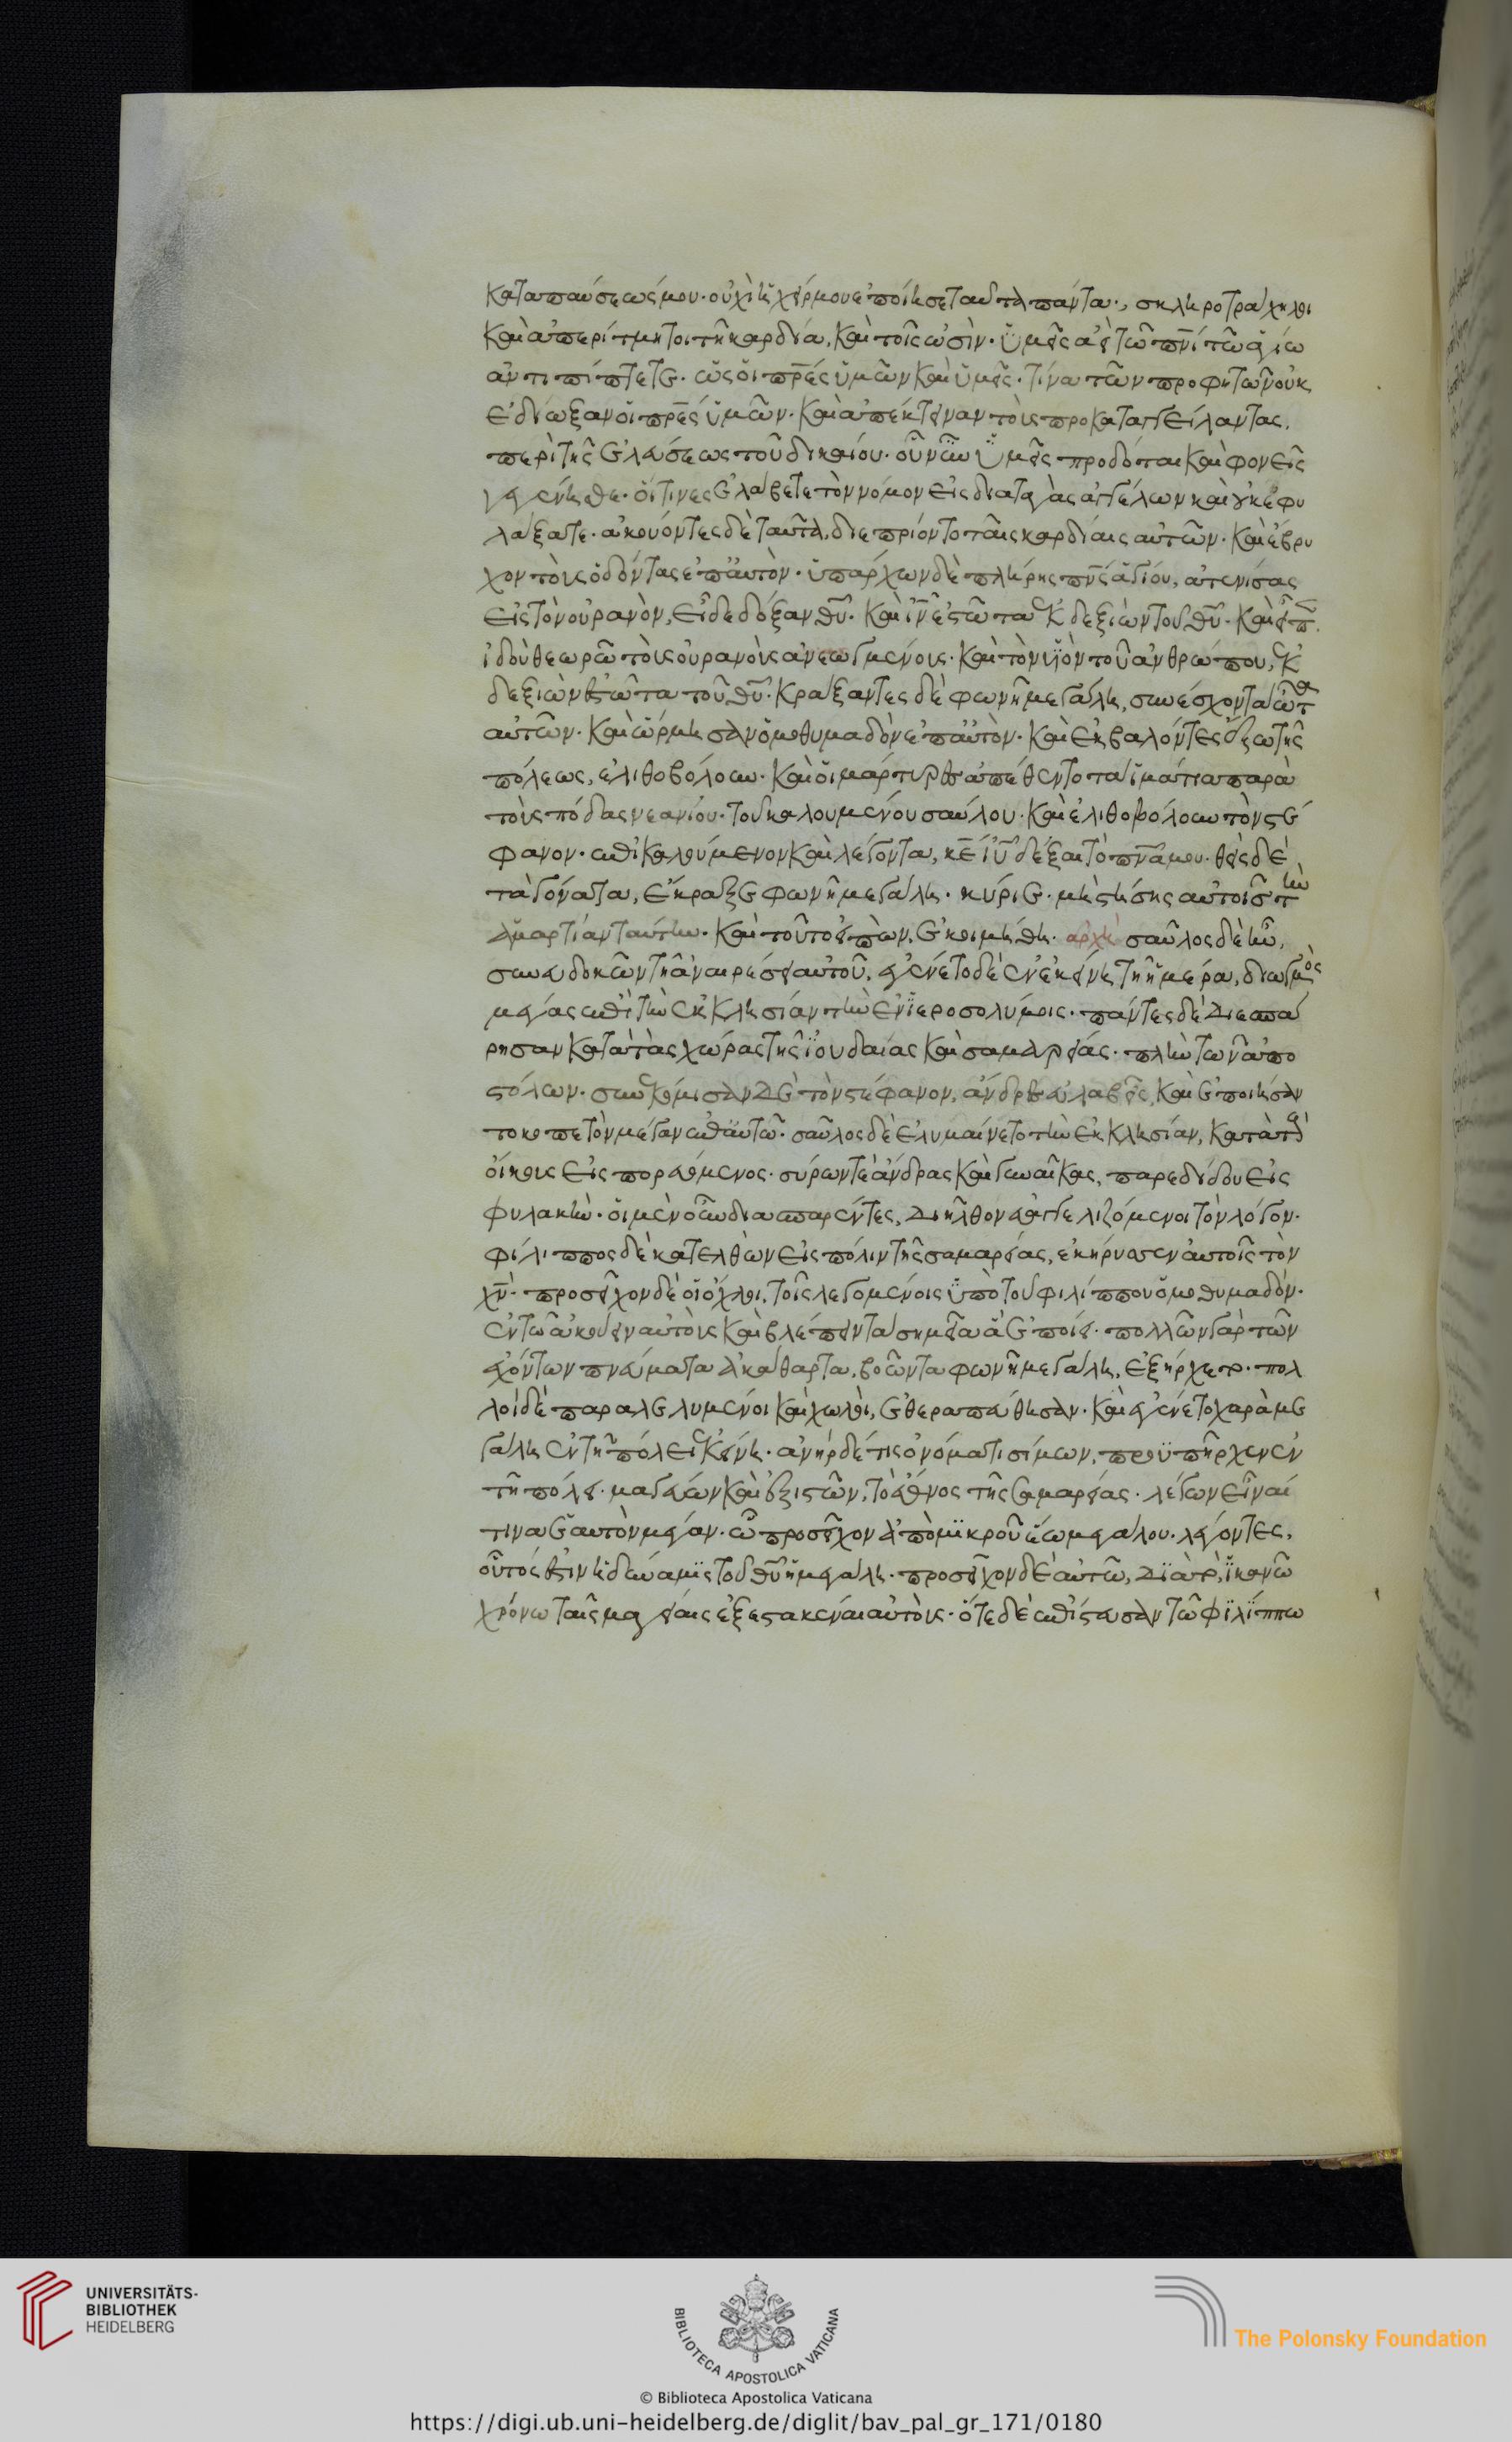 καταπαύσεώς μου· οὐχὶ ἡ χείρ μου ἐποίησε ταῦτα πάντα·, σκληροτράχηλοι
καὶ ἀπερίτμητοι τῆ καρδία, καὶ τοῖς ὠσὶν· ὑμεῖς ἀεὶ τῶ πνῑ τῶ ἁγίω
ἀντιπίπτετε· ὡς οἱ πρε̄ς ὑμῶν καὶ ὑμεῖς· τίνα τῶν προφητῶν οὐκ
ἐδίωξαν οἱ πρε̄ς ὑμῶν· καὶ ἀπέκτειναν τοὺς προκαταγγείλαντας,
περὶ τῆς ἐλεύσεως τοῦ δικαίου· οὗ νῦν ὑμεῖς προδόται καὶ φονεῖς
γεγένησθε· οἵτινες ἐλάβετε τὸν νόμον εἰς διαταγὰς ἀγγέλων καὶ οὐκ ἐφυ
λάξατε· ἀκούοντες δὲ ταῦτα, διεπρίοντο ταῖς καρδίαις αὐτῶν· καὶ ἔβρυ
χον τοὺς ὀδόντας ἐπ' αὐτὸν· ὑπάρχων δὲ πλήρης πνς̄ ἁγίου, ἀτενίσας
εἰς τὸν οὐρανὸν, εἶδε δόξαν θῡ· καὶ ῑν ἑστῶτα ἐκ δεξιῶν τοῦ θῡ· καὶ εἶπ
ἰδοὺ θεωρῶ τοὺς οὐρανοὺς ἀνεωγμένους· καὶ τὸν υἱὸν τοῦ ἀνθρώπου, ἐκ
δεξιῶν ἑστῶτα τοῦ θῡ· κράξαντες δὲ φωνῆ μεγάλη, συνέσχον τὰ ὦτα
αὐτῶν· καὶ ὥρμησαν ὁμοθυμαδὸν ἐπ' αὐτὸν· καὶ ἐκβαλόντες ἔξω τῆς
πόλεως, ἐλιθοβόλουν· καὶ οἱ μάρτυρες ἀπέθεντο τὰ ἱμάτια παρὰ
τοὺς πόδας νεανίου· τοῦ καλουμένου σαύλου· καὶ ἐλιθοβόλουν τὸν στέ
φανον· ἐπικαλούμενον καὶ λέγοντα, κε̄ ῑῡ δέξαι τὸ πνᾱ μου· θεὶς δὲ
τὰ γόνατα, ἔκραξε φωνῆ μεγάλη· κύριε· μὴ στήσης αὐτοῖς τὴν
ἁμαρτίαν ταύτην· καὶ τοῦτο εἰπὼν, ἐκοιμήθη· αρχὴ σαῦλος δὲ ἦν,
συνευδοκῶν τῆ ἀναιρέσει αὐτοῦ, ἐγένετο δὲ ἐν ἐκείνη τῆ ἡμέρα, διωγμὸς
μέγας ἐπὶ τὴν ἐκκλησίαν τὴν ἐν ἱεροσολύμοις· πάντες δὲ διεσπά
ρησαν κατὰ τὰς χώρας τῆς ἰουδαίας καὶ σαμαρείας· πλὴν τῶν ἀπο
στόλων· συνεκόμισαν δὲ τὸν στέφανον, ἄνδρες εὐλαβεῖς, καὶ ἐποιήσαν
το κοπετὸν μέγαν ἐπ' αὐτῶ· σαῦλος δὲ ἐλυμαίνετο τὴν ἐκκλησίαν, κατὰ τοὺς
οἴκους εἰσπορευόμενος· σύρων τὲ ἄνδρας καὶ γυναῖκας, παρεδίδου εἰς
φυλακὴν· οἱ μὲν οὖν διασπαρέντες, διῆλθον εὐαγγελιζόμενοι τὸν λόγον·
φίλιππος δὲ κατελθὼν εἰς πόλιν τῆς σαμαρείας, ἐκήρυσσεν αὐτοῖς τὸν
χν̄· προσεῖχον δὲ οἱ ὄχλοι, τοῖς λεγομένοις ὑπὸ τοῦ φιλίππου ὁμοθυμαδόν·
ἐν τῶ ἀκούειν αὐτοὺς καὶ βλέπειν τὰ σημεῖα ἃ ἐποίει· πολλῶν γὰρ τῶν
ἐχόντων πνεύματα ἀκάθαρτα, βοῶντα φωνῆ μεγάλη, ἐξήρχετο· πολ
λοὶ δὲ παραλελυμένοι καὶ χωλοὶ, ἐθεραπεύθησαν· καὶ ἐγένετο χαρὰ με
γάλη ἐν τῆ πόλει ἐκείνη· ἀνὴρ δέ τις ὀνόματι σίμων, προϋπῆρχεν ἐν
τῆ πόλει· μαγεύων καὶ ἐξιστῶν, τὸ ἔθνος τῆς σαμαρείας· λέγων εἶναί
τινα ἑαυτὸν μέγαν· ὧ προσεῖχον ἀπὸ μικροῦ ἕως μεγάλου· λέγοντες,
οὗτός ἐστιν ἡ δύναμις τοῦ θῡ ἡ μεγάλη· προσεῖχον δὲ αὐτῶ, διὰ τὸ, ἱκανῶ
χρόνω ταῖς μαγείαις ἐξεστακέναι αὐτοὺς· ὅτε δὲ ἐπίστευσαν τῶ φιλίππω
UNIVERSITÄTS-
BIBLIOTHEK
HEIDELBERG
BIBLIOTECA APOSTOLICA VATICANA
The Polonsky Foundation
© Biblioteca Apostolica Vaticana
https://digi.ub.uni-heidelberg.de/diglit/bav_pal_gr_171/0180